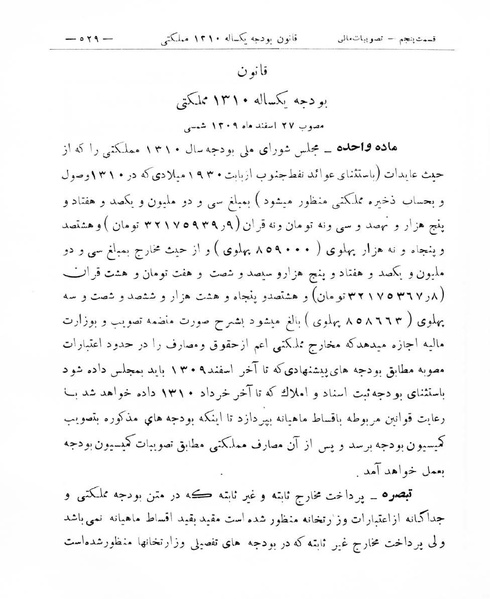 قسمت پنجم – تصویبات مالی قانون بودجه یکساله ۱۳۱۰ مملکتی — ۵۲۹ —
قانون
بودجه یکساله ۱۳۱۰ مملکتی
مصوب ۲۷ اسفند ماه ۱۳۰۹ شمسی
ماده واحده – مجلس شورای ملی بودجه سال ۱۳۱۰ مملکتی را که از
حیث عایدات (باستثنای عوائد نفط جنوب از بابت ۱۹۳۰ میلادی که در ۱۳۱۰ وصول
و بحساب ذخیره مملکتی منظور میشود) بمبلغ سی و دو ملیون و یکصد و هفتاد و
پنج هزار و نهصد و سی ونه تومان ونه قران (۳۲۱۷۵۹۳۹ر۹ تومان) و هشتصد
و پنجاه و نه هزار پهلوی (۸۵۹۰۰۰ پهلوی) و از حیث مخارج بمبلغ سی و دو
ملیون و یکصد و هفتاد و پنج هزارو سیصد و شصت و هفت تومان و هشت قران
(۳۲۱۷۵۳۶۷ر۸ تومان) و هشتصدو پنجاه و هشت هزار و ششصد و شصت و سه
پهلوی (۸۵۸۶۶۳ پهلوی) بالغ میشود بشرح صورت منضمه تصویب و بوزارت
مالیه اجازه میدهدکه مخارج مملکتی اعم ازحقوق ومصارف را در حدود اعتبارات
مصوبه مطابق بودجه های پیشنهادی که تا آخر اسفند۱۳۰۹ باید بمجلس داده شود
باستثنای بودجه ثبت اسناد و املاك که تا آخر خرداد ۱۳۱۰ داده خواهد شد با
رعایت قوانین مربوطه باقساط ماهیانه بپردازد تا اینکه بودجه های مذکوره بتصویب
کمیسیون بودجه برسد و پس از آن مصارف مملکتی مطابق تصویبات کمیسیون بودجه
بعمل خواهد آمد.
تبصره – پرداخت مخارج ثابته و غیر ثابته که در متن بودجه مملکتی و
جداگانه ازاعتبارات وزارتخانه منظور شده است مقید بقید اقساط ماهیانه نمی باشد
ولی پرداخت مخارج غیر ثابته که در بودجه های تفصیلی وزارتخانها منظورشده‌است